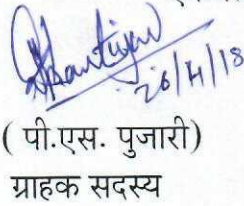 26/4/18
( पी.एस. पुजारी)
ग्राहक सदस्य